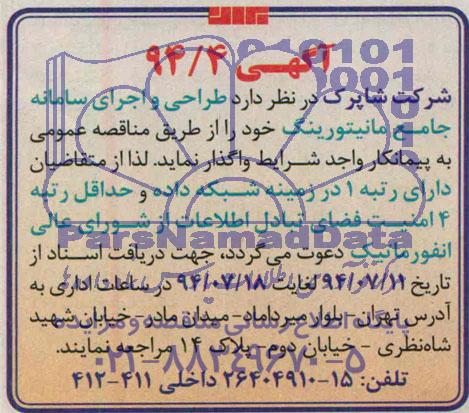 آگهی ۹۴/۴
شرکت شاپرک در نظر دارد طراحی و اجرای سامانه
جامع مانیتورینگ خود را از طریق مناقصه عمومی
به پیمانکار واجد شرایط واگذار نماید. لذا از متقاضیان
دارای رتبه ۱ در زمینه شبکه داده و حداقل رتبه
۴ امنیت فضای تبادل اطلاعات از شورای عالی
انفورماتیک دعوت می‌گردد، جهت دریافت اسناد از
تاریخ ۹۴/۰۷/۱۱ لغایت ۹۴/۰۷/۱۸ در ساعات اداری به
آدرس تهران - بلوار میرداماد - میدان مادر - خیابان شهید
شاه‌نظری - خیابان دوم - پلاک ۱۴ مراجعه نمایند.
تلفن: ۱۵-۲۶۴۰۴۹۱۰ داخلی ۴۱۱-۴۱۲
ParsNamadData
پایگاه اطلاع رسانی مناقصه و مزایده
۰۲۱-۸۸۳۴۹۶۷۰-۵